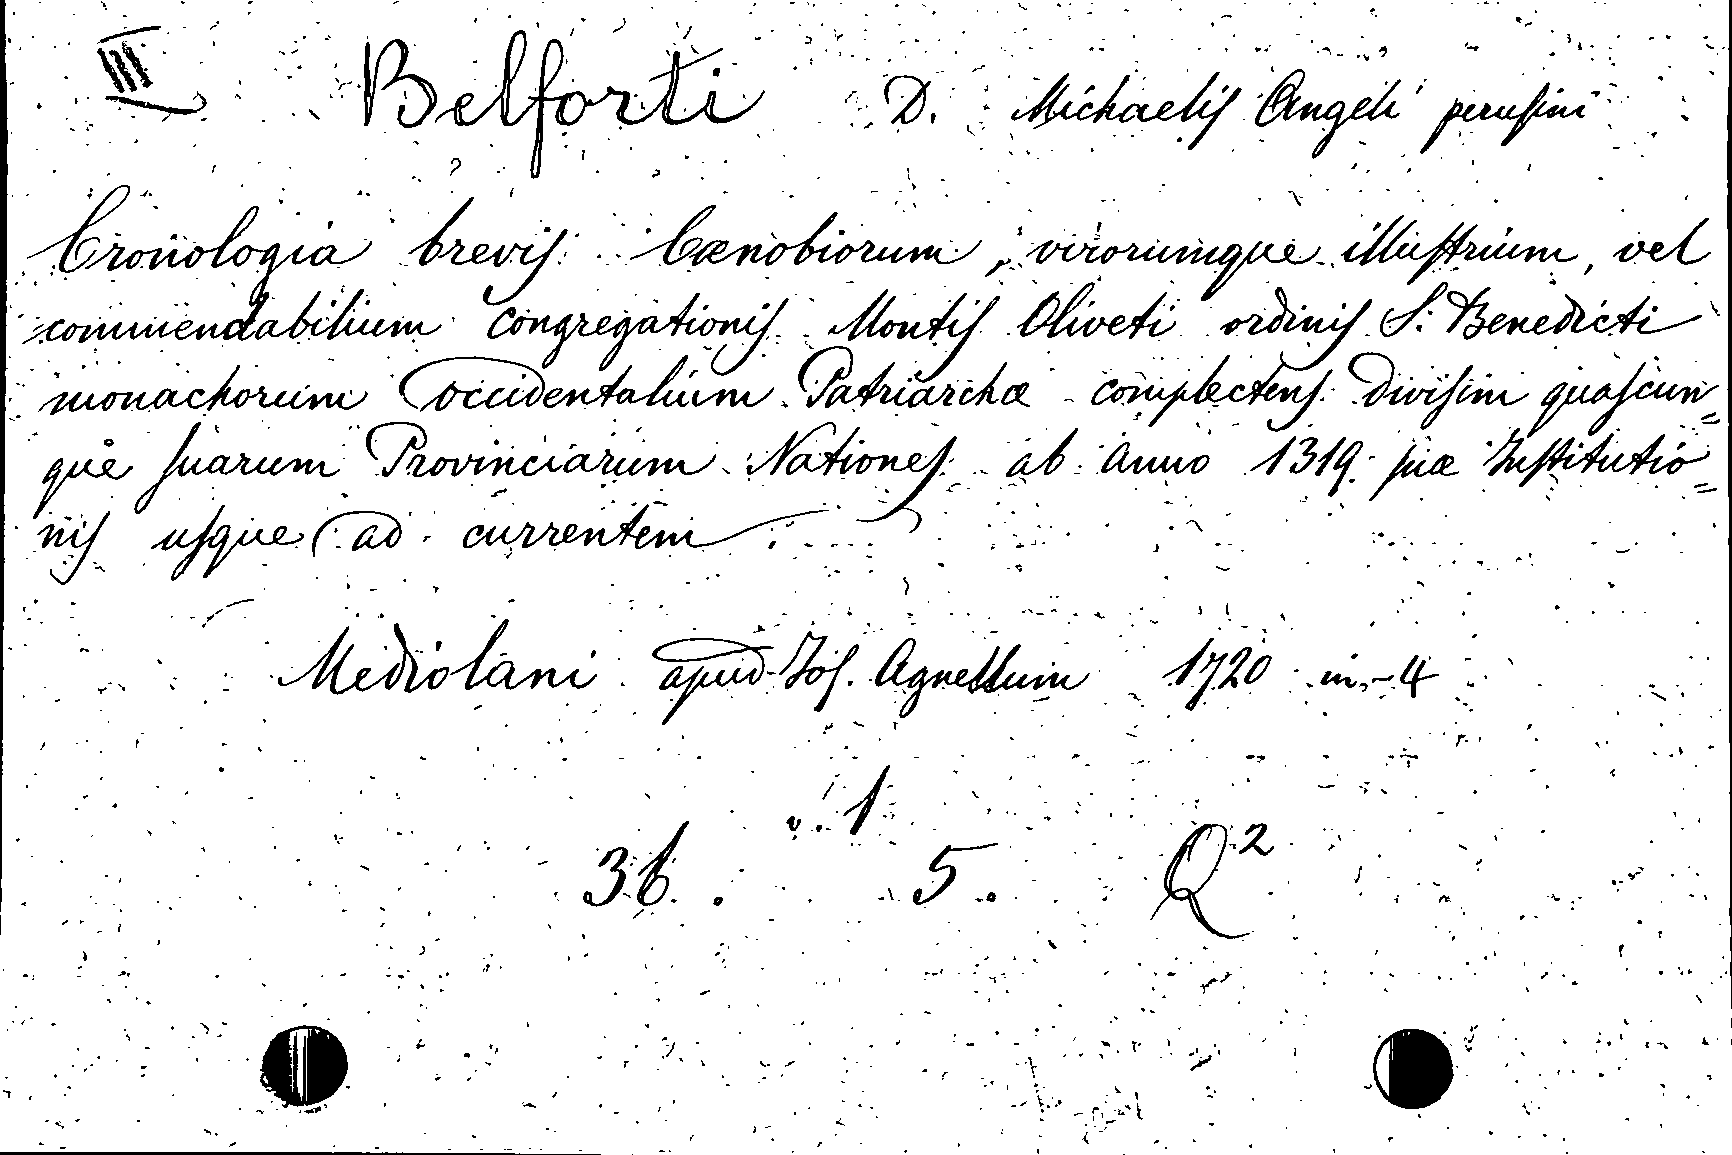 III Belforti D. Michaelis Angeli perusini
Cronologia brevis Cœnobiorum, virorumque illustrium, vel
commendabilium congregationis Montis Oliveti ordinis S. Benedicti
monachorum occidentalium Patriarchæ complectens divisim quascun=
que suarum Provinciarum Nationes ab anno 1319. suæ Institutio=
nis usque ad currentem.
Mediolani apud Jos. Agnellum 1720 in-4
1
36. 5. Q²